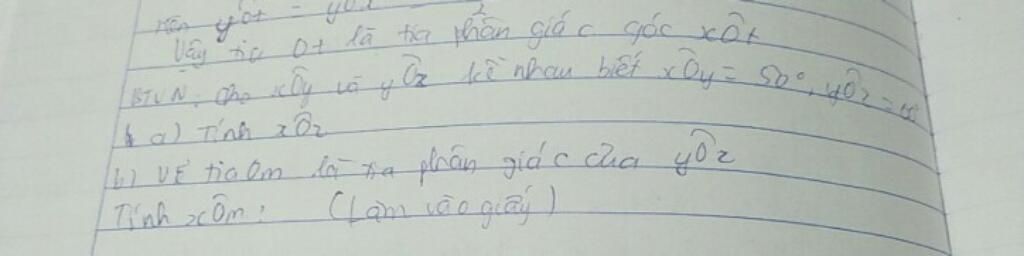 yÔt =
Vậy tia Ot là tia phân giác góc xÔt
BTVN: cho xÔy và yÔz kề nhau biết xÔy = 50°, yÔz =
a) Tính xÔz
b) Vẽ tia Om là tia phân giác của yÔz
Tính xÔm: (Làm vào giấy)